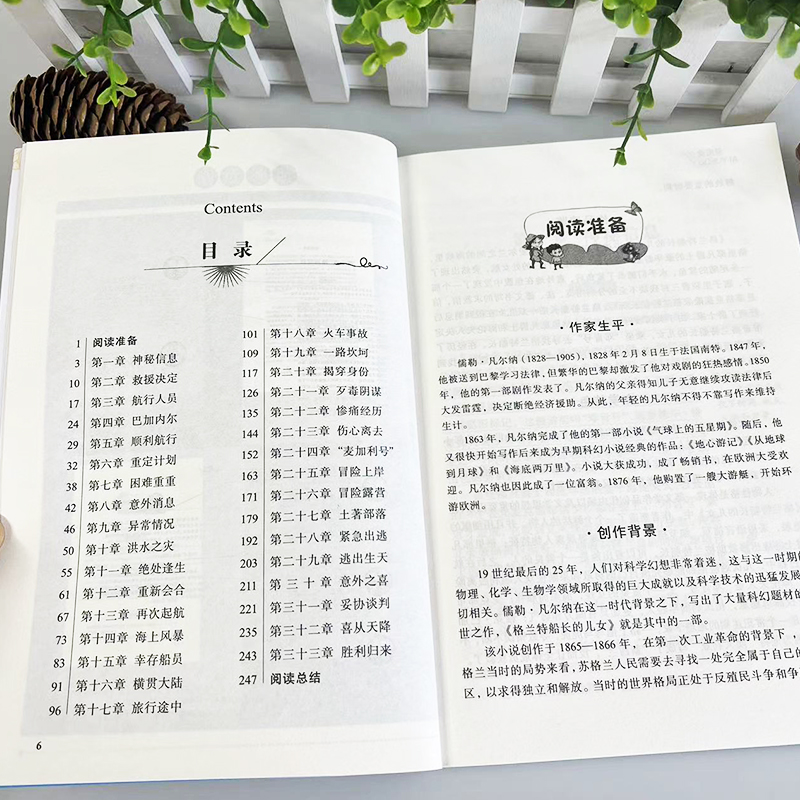 Contents
目录
1 阅读准备
3 第一章 神秘信息
10 第二章 救援决定
17 第三章 航行人员
24 第四章 巴加内尔
29 第五章 顺利航行
32 第六章 重定计划
38 第七章 困难重重
42 第八章 意外消息
46 第九章 异常情况
50 第十章 洪水之灾
55 第十一章 绝处逢生
61 第十二章 重新会合
67 第十三章 再次起航
73 第十四章 海上风暴
83 第十五章 幸存船员
91 第十六章 横贯大陆
96 第十七章 旅行途中
101 第十八章 火车事故
109 第十九章 一路坎坷
117 第二十章 揭穿身份
126 第二十一章 歹毒阴谋
135 第二十二章 惨痛经历
144 第二十三章 伤心离去
152 第二十四章 “麦加利号”
163 第二十五章 冒险上岸
171 第二十六章 冒险露营
179 第二十七章 土著部落
192 第二十八章 紧急出逃
203 第二十九章 逃出生天
211 第三十章 意外之喜
221 第三十一章 妥协谈判
235 第三十二章 喜从天降
243 第三十三章 胜利归来
247 阅读总结
6
阅读准备
·作家生平·
儒勒·凡尔纳（1828—1905），1828年2月8日生于法国南特。1847年，
他被送到巴黎学习法律，但繁华的巴黎却激发了他对戏剧的狂热感情。1850
年，他的第一部剧作发表了。凡尔纳的父亲得知儿子无意继续攻读法律后
大发雷霆，决定断绝经济援助。从此，年轻的凡尔纳不得不靠写作来维持
生计。
1863年，凡尔纳完成了他的第一部小说《气球上的五星期》。随后，他
又很快开始写作后来成为早期科幻小说经典的作品：《地心游记》《从地球
到月球》和《海底两万里》。小说大获成功，成了畅销书，在欧洲大受欢
迎。凡尔纳也因此成了一位富翁。1876年，他购置了一艘大游艇，开始环
游欧洲。
·创作背景·
19世纪最后的25年，人们对科学幻想非常着迷，这与这一时期的
物理、化学、生物学领域所取得的巨大成就以及科学技术的迅猛发展
切相关。儒勒·凡尔纳在这一时代背景之下，写出了大量科幻题材的
世之作，《格兰特船长的儿女》就是其中的一部。
该小说创作于1865—1866年，在第一次工业革命的背景下，
格兰当时的局势来看，苏格兰人民需要去寻找一处完全属于自己的
区，以求得独立和解放。当时的世界格局正处于反殖民斗争和争